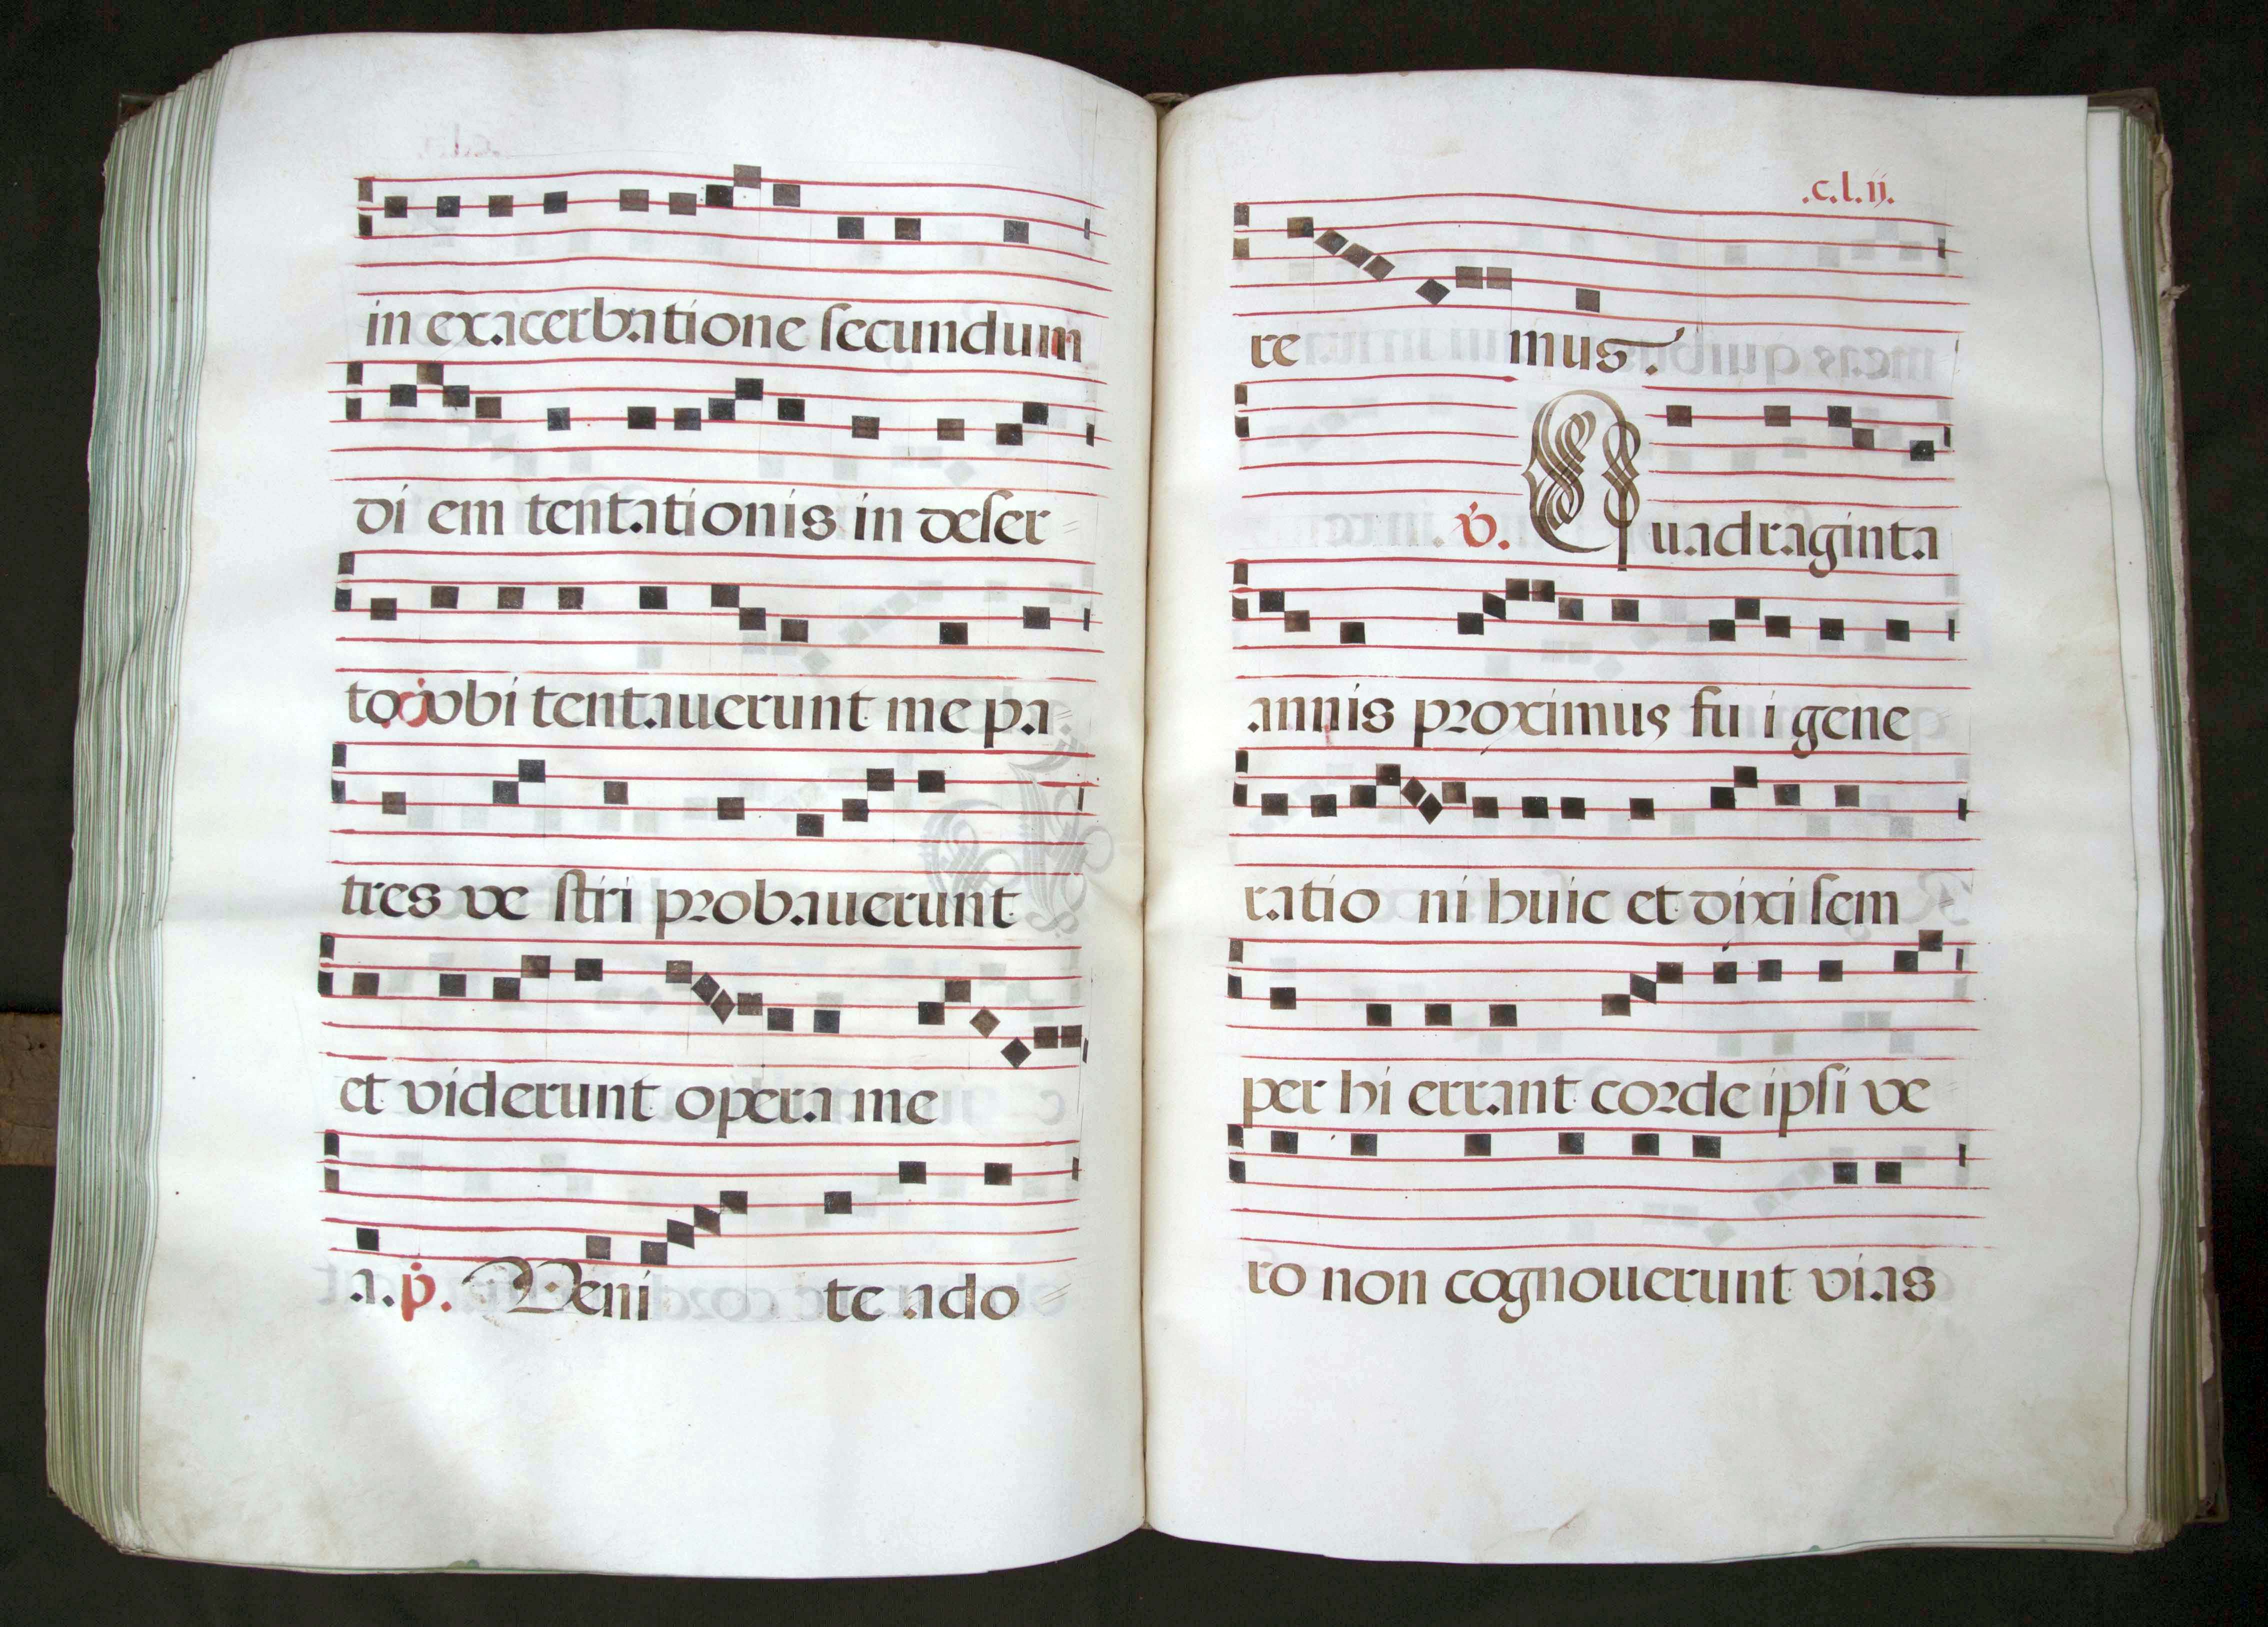 in exacerbatione secundum
di em tentationis in deser
to v̇ vbi tentauerunt me pa
tres ve stri probauerunt
et viderunt opera me
a. ṗ. Veni te ado
.c.l.ij.
re mus.
v̇. Quadraginta
annis proximus fu i gene
ratio ni huic et dixi sem
per hi errant corde ipsi ve
ro non cognouerunt vias